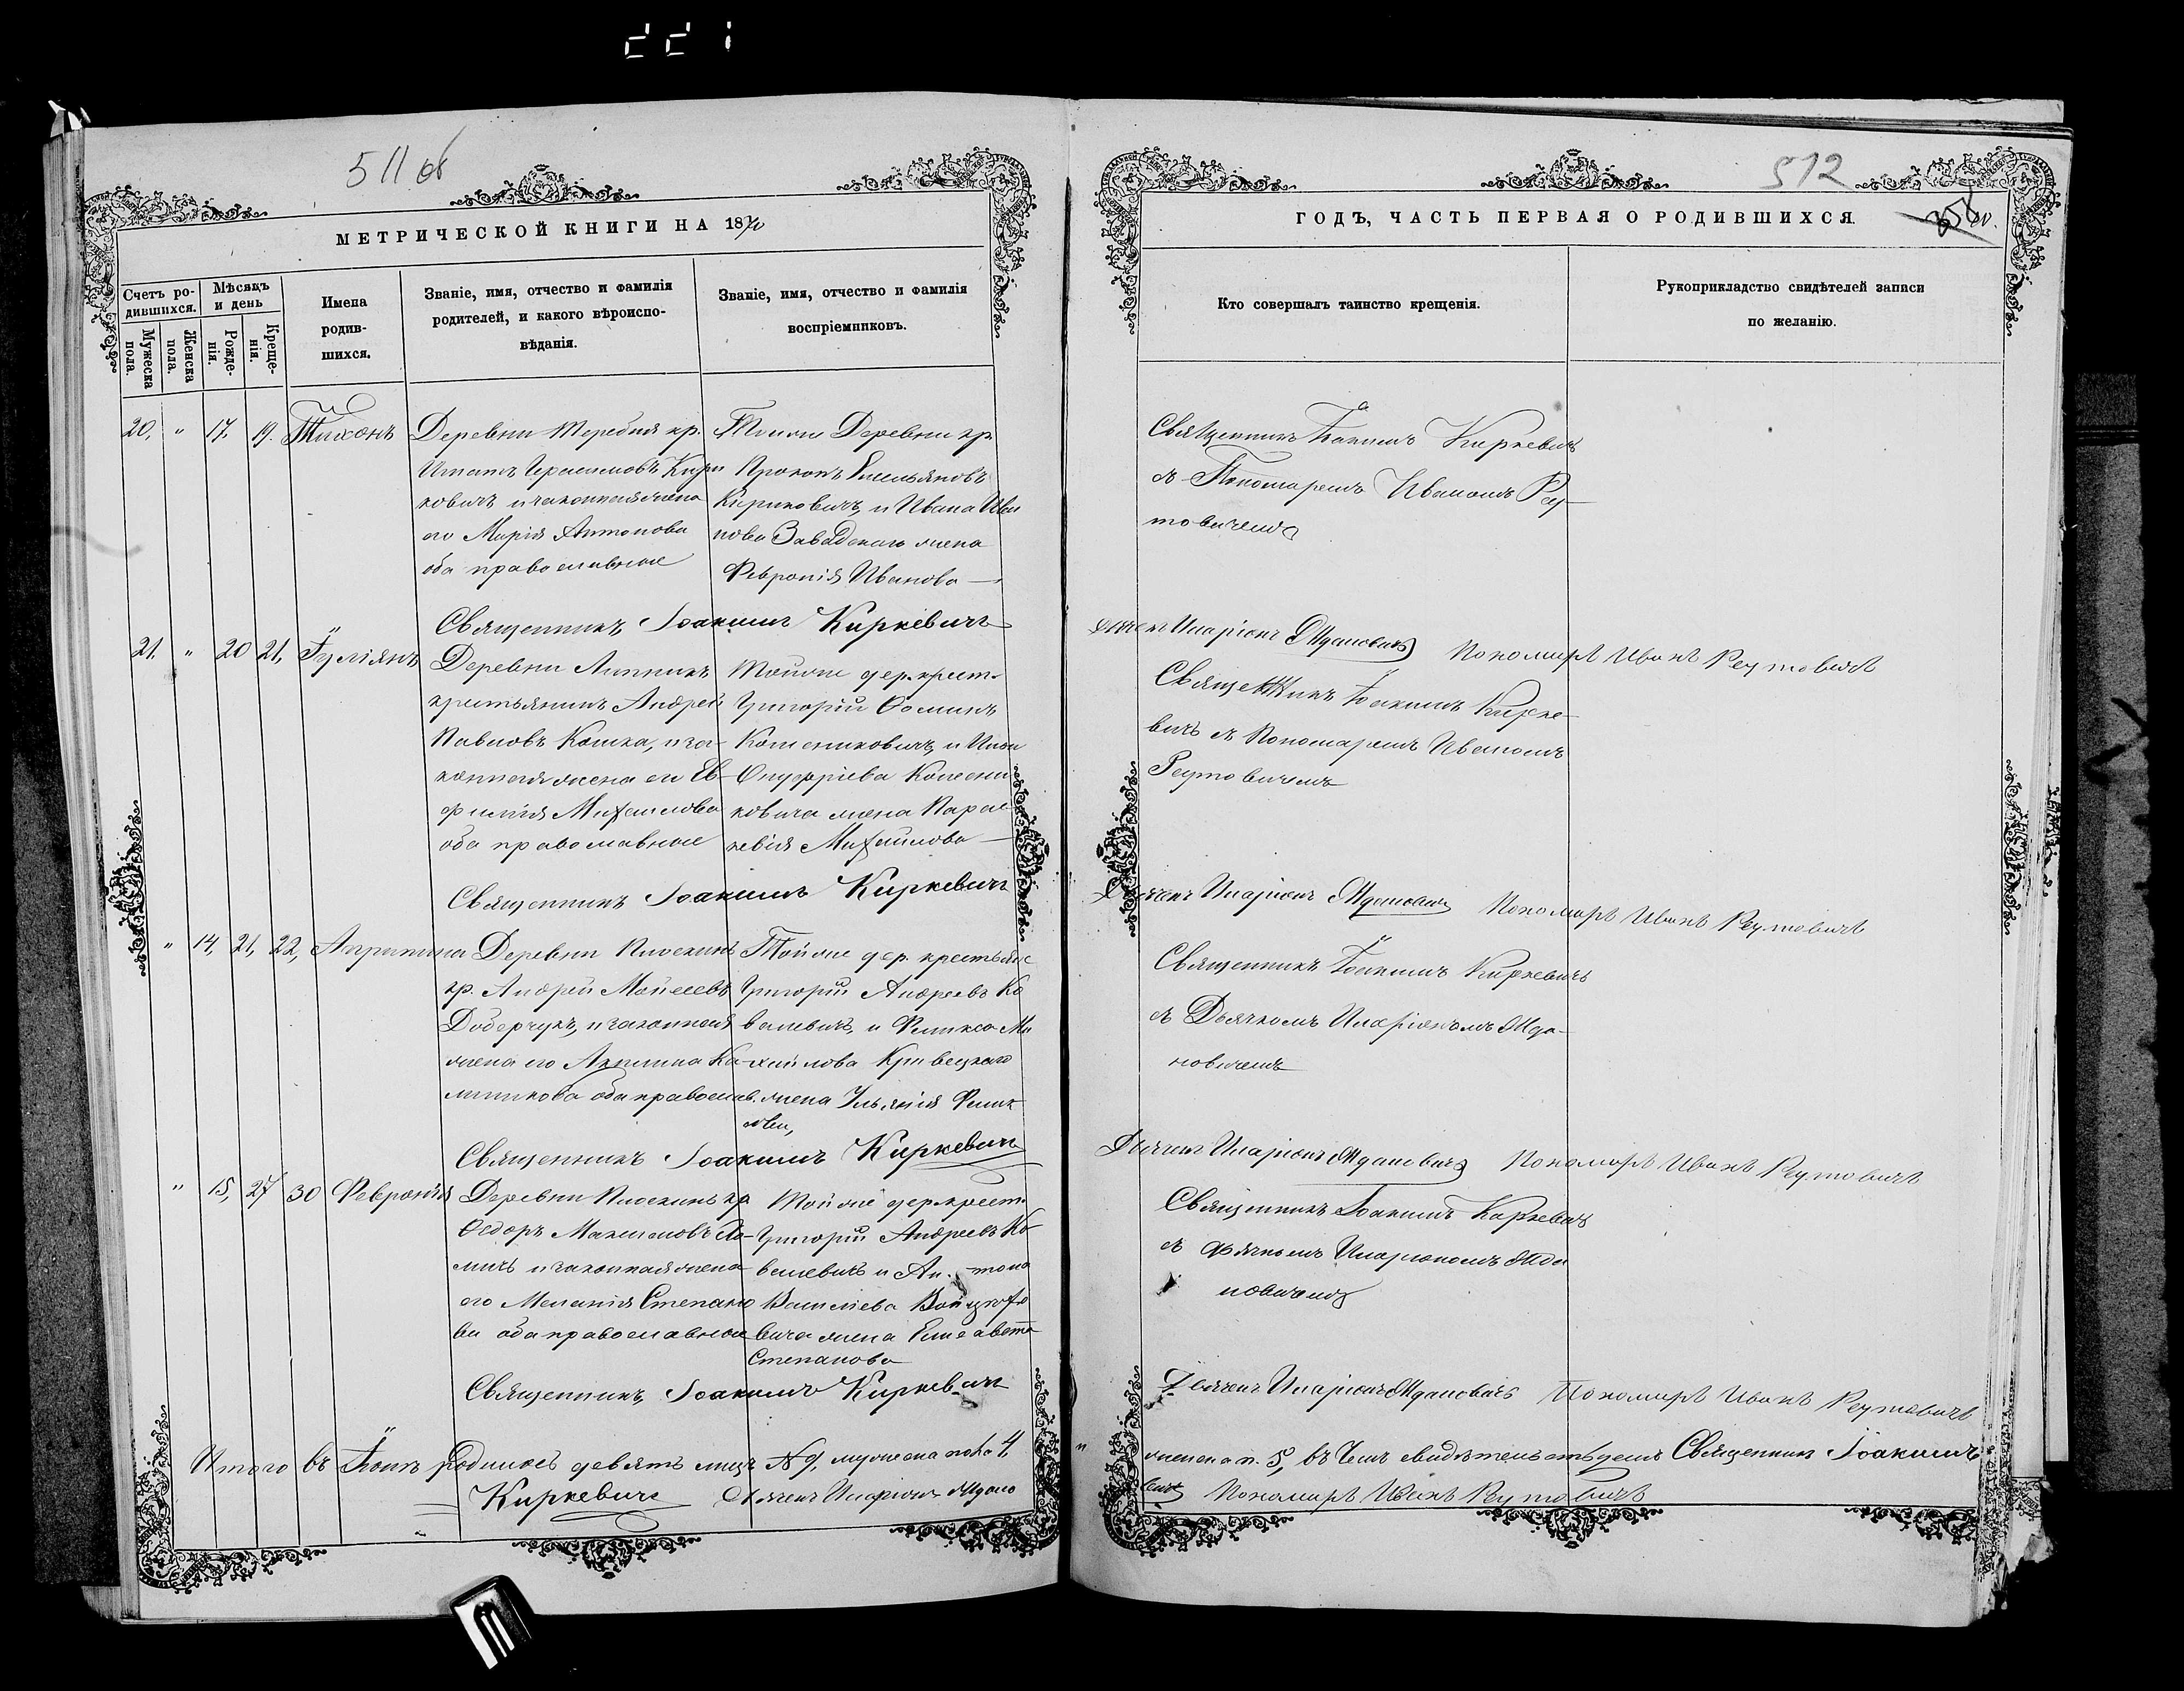 221
511 об
МЕТРИЧЕСКОЙ КНИГИ НА 1870
Счетъ ро-
дившихся.
Мужеска
пола.
Женска
пола.
Мѣсяцъ
и день
Рожде-
нія.
Креще-
нія.
Имена
родив-
шихся.
Званіе, имя, отчество и фамилія
родителей, и какого вѣроиспо-
вѣданія.
Званіе, имя, отчество и фамилія
воспріемниковъ.
20, " 17, 19. Тихонъ
Деревни Теребня кр.
Герасимовъ Кири
ковичъ и законная жена
его Марія Антонова
оба православные
Тойже Деревни кр.
Прокопъ Емельяновъ
Кириковичъ, и Ивана Ива
нова Завадскаго жена
Февронія Иванова —
Священникъ Іоакимъ Киркевичъ
21. " 20 21, Іуліанъ
Деревни Липникъ
крестьянинъ Андрей
Павловъ Кошка, и за-
конная жена его Ев-
фимія Михаилова
оба православные
Тойже дер. крест.
Григорій Ѳоминъ
Колесниковичъ, и
Онуфріева Колесни
ковича жена Парас
кевія Михайлова —
Священникъ Іоакимъ Киркевичъ
" 14, 21, 22, Агрипина
Деревни Плоскинь
кр. Андрей Мойсеевъ
Доберчукъ, и законная
жена его Акилина Ка-
линикова оба православ.
Тойже дер. крестьяне
Григорій Андреевъ Ко
валевичъ, и Феликса Ми
хайлова Кривецкаго
жена Ульянія Фелик
сова,
Священникъ Іоакимъ Киркевичъ
" 15, 27 30 Февронія
Деревни Плоскинь кр.
Ѳедоръ Максимовъ
и законная жена
его Меланія Степано
ва оба православные
Тойже дер. крест.
Григорій Андреевъ Ко
валевичъ и Антона
Василіева Войцехо
вича жена Елисавета
Степанова
Священникъ Іоакимъ Киркевичъ
Итого въ Іюнѣ родилось девять лицъ № 9, мужеска пола 4,
Киркевичъ Дьячекъ Иларіонъ Ждано
512
ГОДЪ, ЧАСТЬ ПЕРВАЯ О РОДИВШИХСЯ.
Кто совершалъ таинство крещенія.
Рукоприкладство свидѣтелей записи
по желанію.
Священникъ Іоакимъ Киркевичъ
съ Пономаремъ Иваномъ Реу-
товичемъ
Дьячекъ Иларіонъ Ждановичъ Пономарь Иванъ Реутовичъ
Священникъ Іоакимъ Кирке-
вичъ съ Пономаремъ Иваномъ
Реутовичемъ
Дьячекъ Иларіонъ Ждановичъ Пономарь Иванъ Реутовичъ
Священникъ Іоакимъ Киркевичъ
съ Дьячкомъ Иларіономъ Жда-
новичемъ
Дьячекъ Иларіонъ Ждановичъ Пономарь Иванъ Реутовичъ
Священникъ Іоакимъ Киркевичъ
съ Дьячкомъ Иларіономъ Жда
новичемъ
Дьячекъ Иларіонъ Ждановичъ Пономарь Иванъ Реутовичъ
женска п. 5, въ чемъ свидѣтельствуемъ Священникъ Іоакимъ
вичъ Пономарь Иванъ Реутовичъ